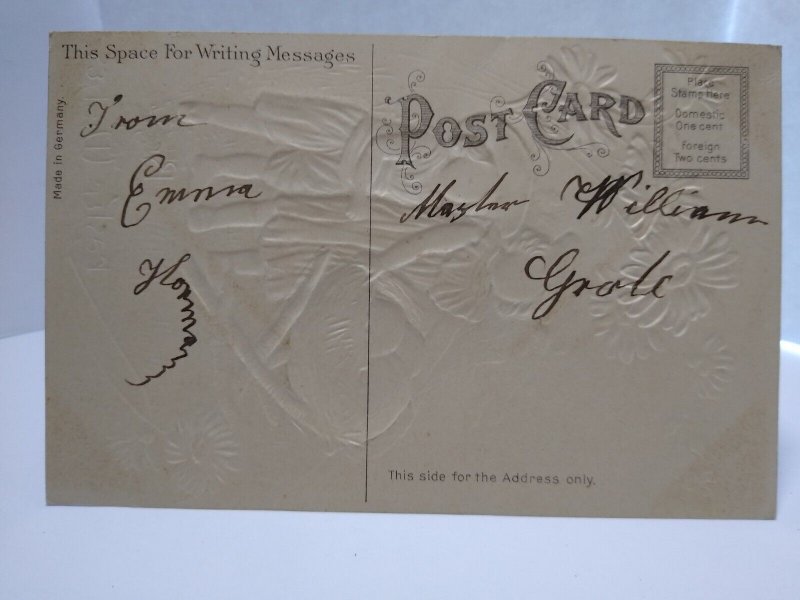 This Space For Writing Messages
Made in Germany.
From
Emma
POST CARD
Place
Stamp here
Domestic
One cent
foreign
Two cents
Master William
Grote
This side for the Address only.